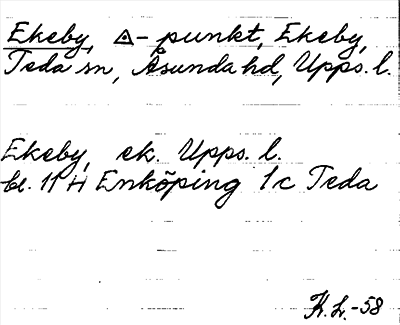 Ekeby, △-punkt, Ekeby,
Teda sn, Åsunda hd, Upps. l.
Ekeby, ek. Upps. l.
bl. 11 H Enköping 1c Teda
K. L. -58